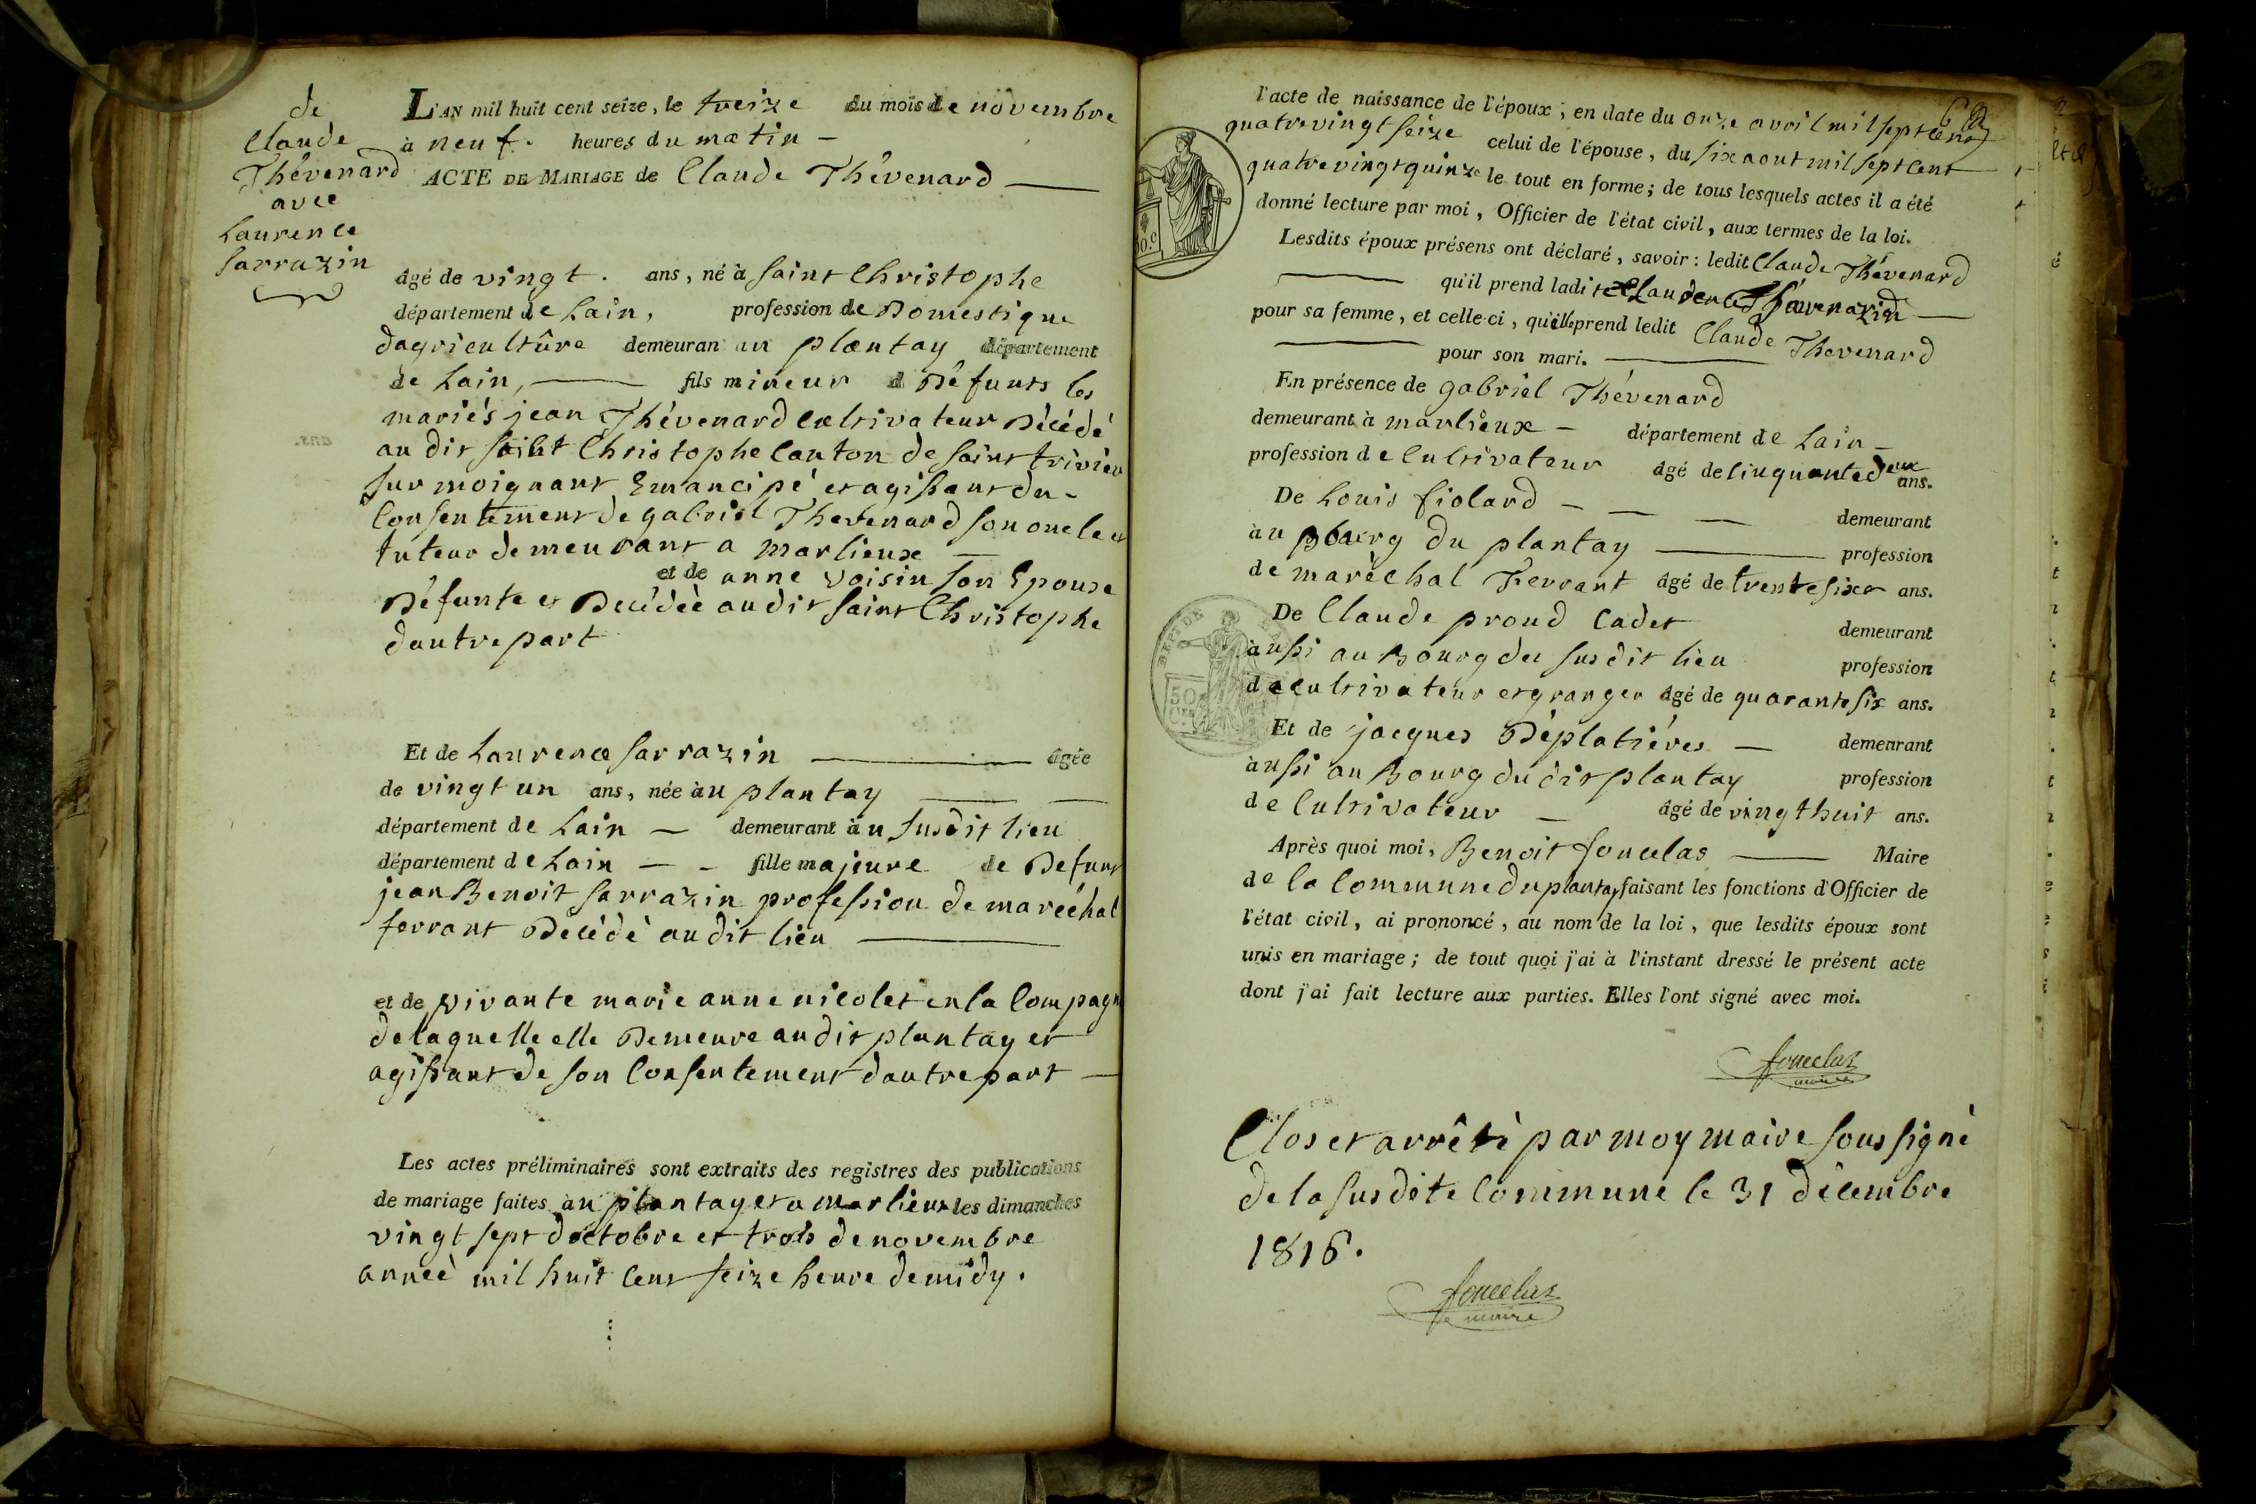 de
Claude
Thévenard
avec
Laurence
Sarrazin
L'AN mil huit cent seize, le treize du mois de novembre
à neuf. heures du matin —
ACTE DE MARIAGE de Claude Thévenard —
âgé de vingt. ans, né à Saint Christophe
département de Lain, profession de Domestique
dagricultûre demeurant au plantay département
de Lain, — fils mineur d Défunts les
mariés jean Thévenard Cultivateur Décédé
au dit Saint Christophe Canton de Saint trivier
Sur moignant Emancipé et agissant du -
Consentement de gabriel Thevenard son oncle et
tuteur demeurant a Marlieux —
et de anne Voisin Son Epouse
Défunte et Decédèe audit Saint Christophe
dautre part
Et de Laurence Sarrazin — âgée
de vingt un ans, née àu plantay —
département de Lain — demeurant àu Susdit lieu
département de Lain — - fille majeure de Defunt
jean Benoit Sarrazin profession de maréchal
ferrant Décédè audit lieu —
et de vivante marie anne nicolet en la Compagn
de laquelle elle Demeure audit plantay et
agissant de son Consentement dautre part —
Les actes préliminaires sont extraits des registres des publications
de mariage faites àu plantay et a Marlieux les dimanches
vingt sept doctobre et trois de novembre
anneè mil huit Cent Seize heure de midy.
l'acte de naissance de l'époux; en date du onze avril mil sept cent
quatre vingt seize celui de l'épouse, du six aout mil sept cent
quatre vingt quinze le tout en forme; de tous lesquels actes il a été
donné lecture par moi, Officier de l'état civil, aux termes de la loi.
Lesdits époux présens ont déclaré, savoir: ledit Claude Thévenard
— qu'il prend ladite
pour sa femme, et celle-ci, qu'elle prend ledit Claude Thevenard
— pour son mari. —
En présence de gabriel Thévenard
demeurant à marlieux — département de Lain —
profession de Cultivateur âgé de Cinquante deux ans.
De Louis fiolard — — — demeurant
àu bourg du plantay — profession
de marèchal Ferrant âgé de trente six ans.
De Claude proud Cadet demeurant
àussi au Bourg du Susdit lieu profession
de cultivateur et granger âgé de quarante six ans.
Et de jacques Déplatiéres — demeurant
àussi au Bourg du dit plantay profession
de Cultivateur — âgé de vingt huit ans.
Après quoi moi, Benoit foncelas — Maire
de la Commune du plantay faisant les fonctions d'Officier de
l'état civil, ai prononcé, au nom de la loi, que lesdits époux sont
unis en mariage; de tout quoi j'ai à l'instant dressé le présent acte
dont j'ai fait lecture aux parties. Elles l'ont signé avec moi.
foncelas
maire
Clos et arrêtè par moy maire sous signè
de la susdite Commune le 31 décembre
1816.
foncelas
maire